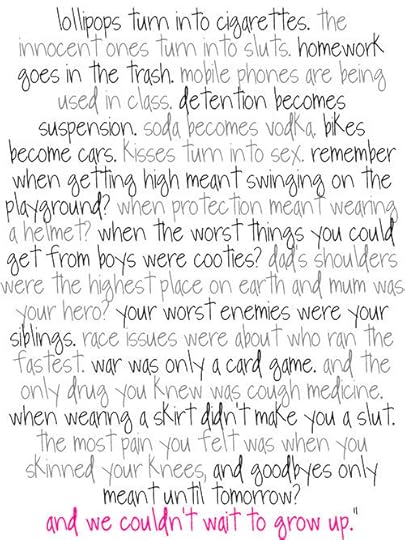 lollipops turn into cigarettes. the
innocent ones turn into sluts. homework
goes in the trash. mobile phones are being
used in class. detention becomes
suspension. soda becomes vodka. bikes
become cars. kisses turn into sex. remember
when getting high meant swinging on the
playground? when protection meant wearing
a helmet? when the worst things you could
get from boys were cooties? dad's shoulders
were the highest place on earth and mum was
your hero? your worst enemies were your
siblings. race issues were about who ran the
fastest. war was only a card game. and the
only drug you knew was cough medicine.
when wearing a skirt didn't make you a slut.
the most pain you felt was when you
skinned your knees, and goodbyes only
meant until tomorrow?
and we couldn't wait to grow up."